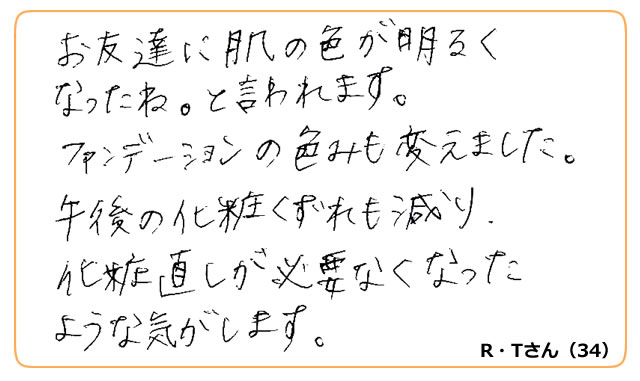 お友達に肌の色が明るく
なったね。と言われます。
ファンデーションの色みも変えました。
午後の化粧くずれも減り、
化粧直しが必要なくなった
ような気がします。
R・Tさん（34）